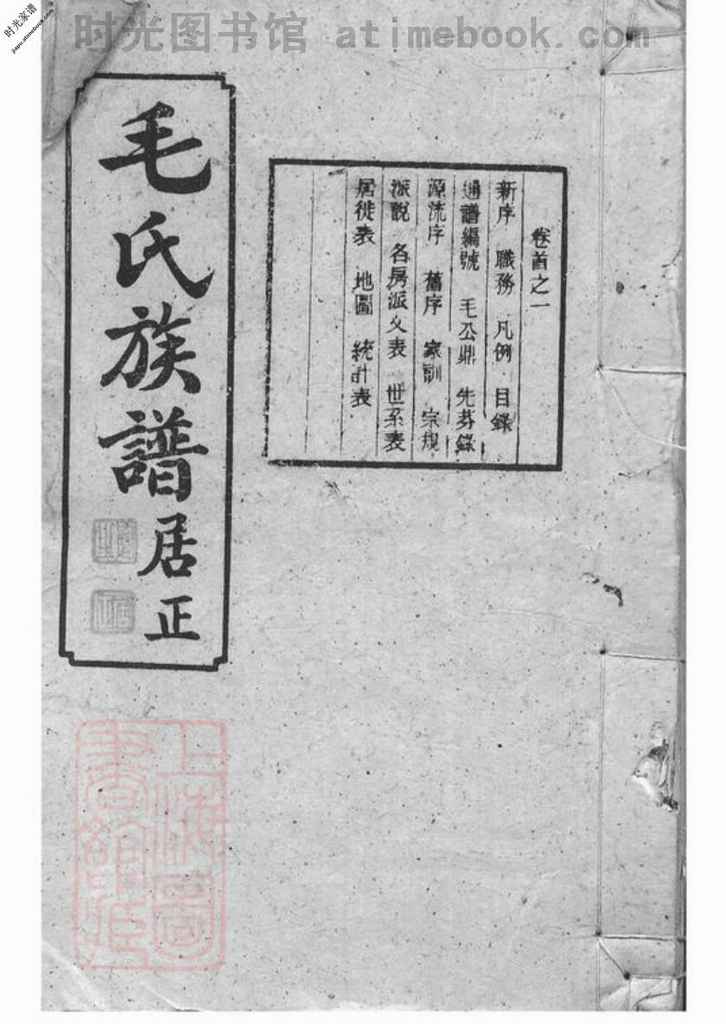 时光家谱
时光图书馆 atimebook.com
毛氏族譜
居正
卷首之一
新序 職務 凡例 目錄
通譜編號 毛公鼎 先芬錄
源流序 舊序 家訓 宗規
派說 各房派文表 世系表
居徙表 地圖 統計表
上海圖
書館藏